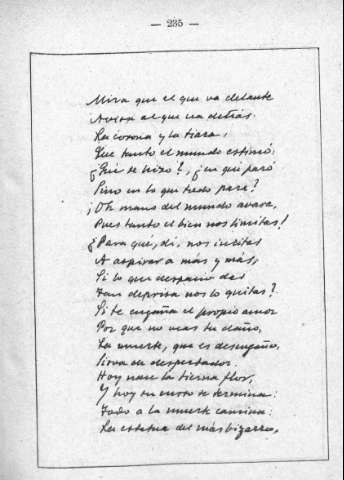 — 235 —
Mira que el que va delante
Avisa al que va detrás.
La corona y la tiara,
Que tanto el mundo estimó,
¿Qué se hizo?, ¿en qué paró
Sino en lo que todo para?
¡Oh mano del mundo avara,
Pues tanto el bien nos limitas!
¿Para qué, di, nos incitas
A aspirar a más y más,
Si lo que despacio das
Tan deprisa nos lo quitas?
Si te engaña el propio amor
Por que no veas tu daño,
La muerte, que es desengaño,
Sirva de despertador.
Hoy nace la tierna flor,
Y hoy su curso se termina:
Todo a la muerte camina:
La estatua del más bizarro,